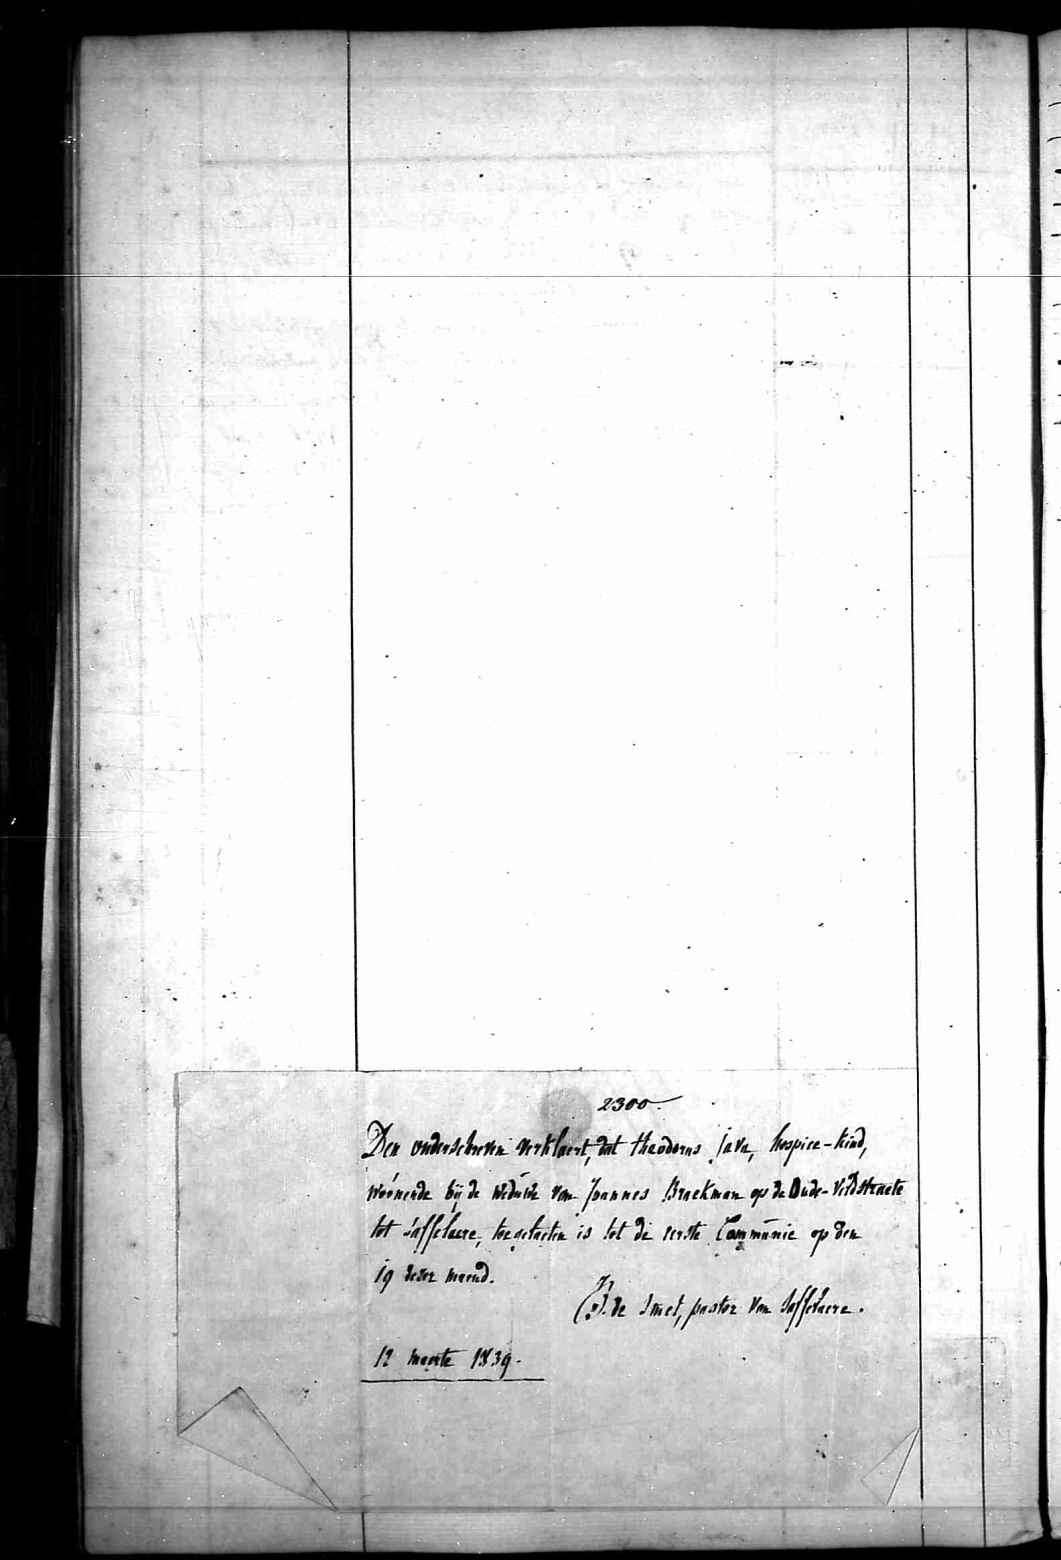 2300.
Den onderschreven verklaert, dat theodorus java, hospice-kind,
woónende bÿ de weduwe van Joannes Braekman op de Oude-Veldstraete
tot saffelaere, toegelaeten is tot de eerste Communie op den
19 dezer maend.
de Smet, pastor van Saffelaere.
12 maerte 1839.